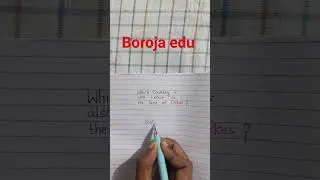 Boroja edu
Which Country is
also known as
the land of Cakes ?
Whi
also
the
kes ?